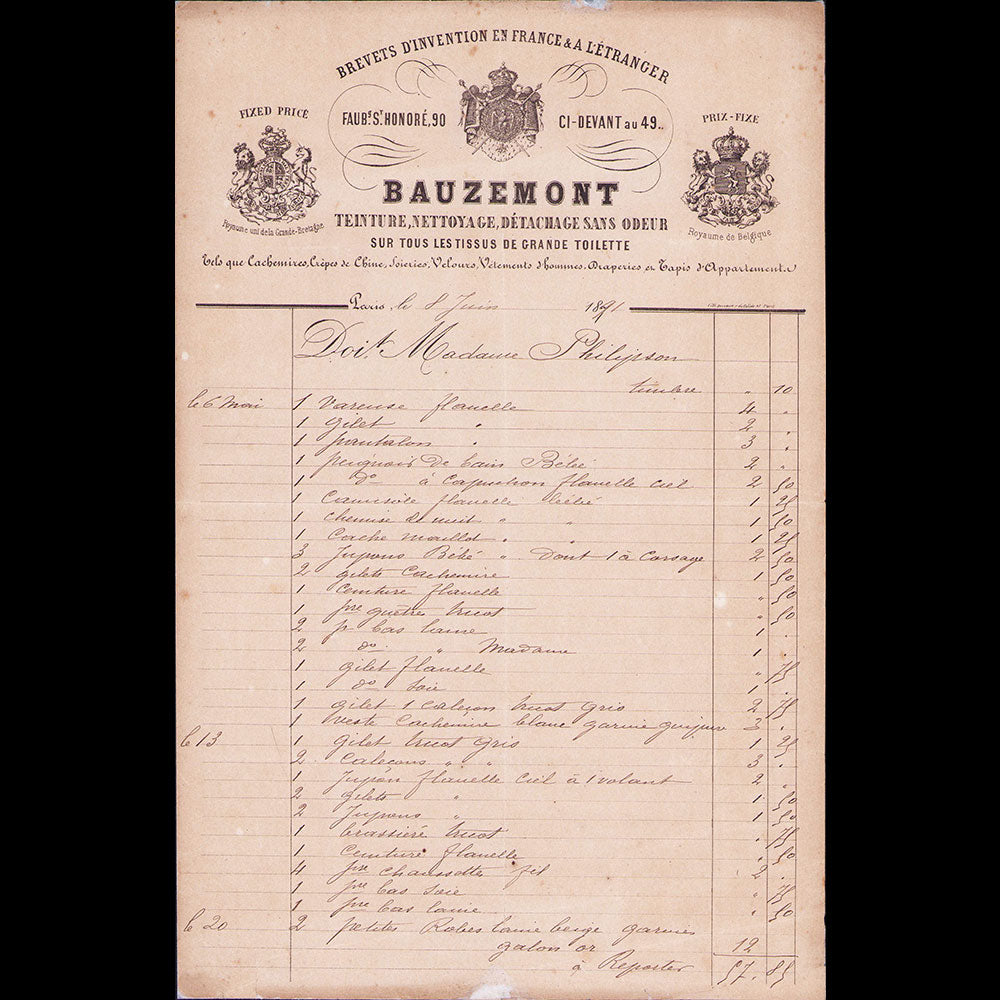 BREVETS D'INVENTION EN FRANCE & A L'ÉTRANGER
FIXED PRICE
FAUBG. ST. HONORÉ, 90
CI-DEVANT au 49..
PRIX-FIXE
BAUZEMONT
Royaume uni de la Grande-Bretagne
TEINTURE, NETTOYAGE, DÉTACHAGE SANS ODEUR
Royaume de Belgique
SUR TOUS LES TISSUS DE GRANDE TOILETTE
Tels que Cachemires, Crêpes de Chine, Soieries, Velours, Vêtements d'hommes, Draperies et Tapis d'Appartements
Paris, le 8 Juin 1891
Doit Madame Philipson
timbre " 10
le 6 Mai 1 Vareuse flanelle 4 "
1 gilet " 2 "
1 pantalon " 3 "
1 peignoir de bain Bébé 2 "
1 do à capuchon flanelle ciel 2 50
1 Camisole flanelle bébé 1 25
1 chemise de nuit " " 1 50
1 Cache maillot " " 1 25
3 Jupons Bébé " Dont 1 à Corsage 2 50
2 gilets Cachemire 1 50
1 Ceinture flanelle " 50
1 pre guêtres tricot " 50
2 p bas laine 1 .
2 do " Madame 1 .
1 gilet flanelle " 75
1 do soie 1 .
1 gilet 1 Caleçon tricot gris 2 75
1 Veste Cachemire blanc garnie guipure 3 .
le 13 1 Gilet tricot gris 1 25
2 Caleçons " " 3 .
1 Jupon flanelle ciel à 1 volant 2 "
2 gilets " 1 50
2 Jupons " 1 50
1 brassière tricot . 75
1 Ceinture flanelle " 50
4 pre chaussettes fil 2 .
1 pre bas soie " 75
1 pre bas laine " 50
le 20 2 petites Robes laine beige garnies
galon or 12
à Reporter 57 85